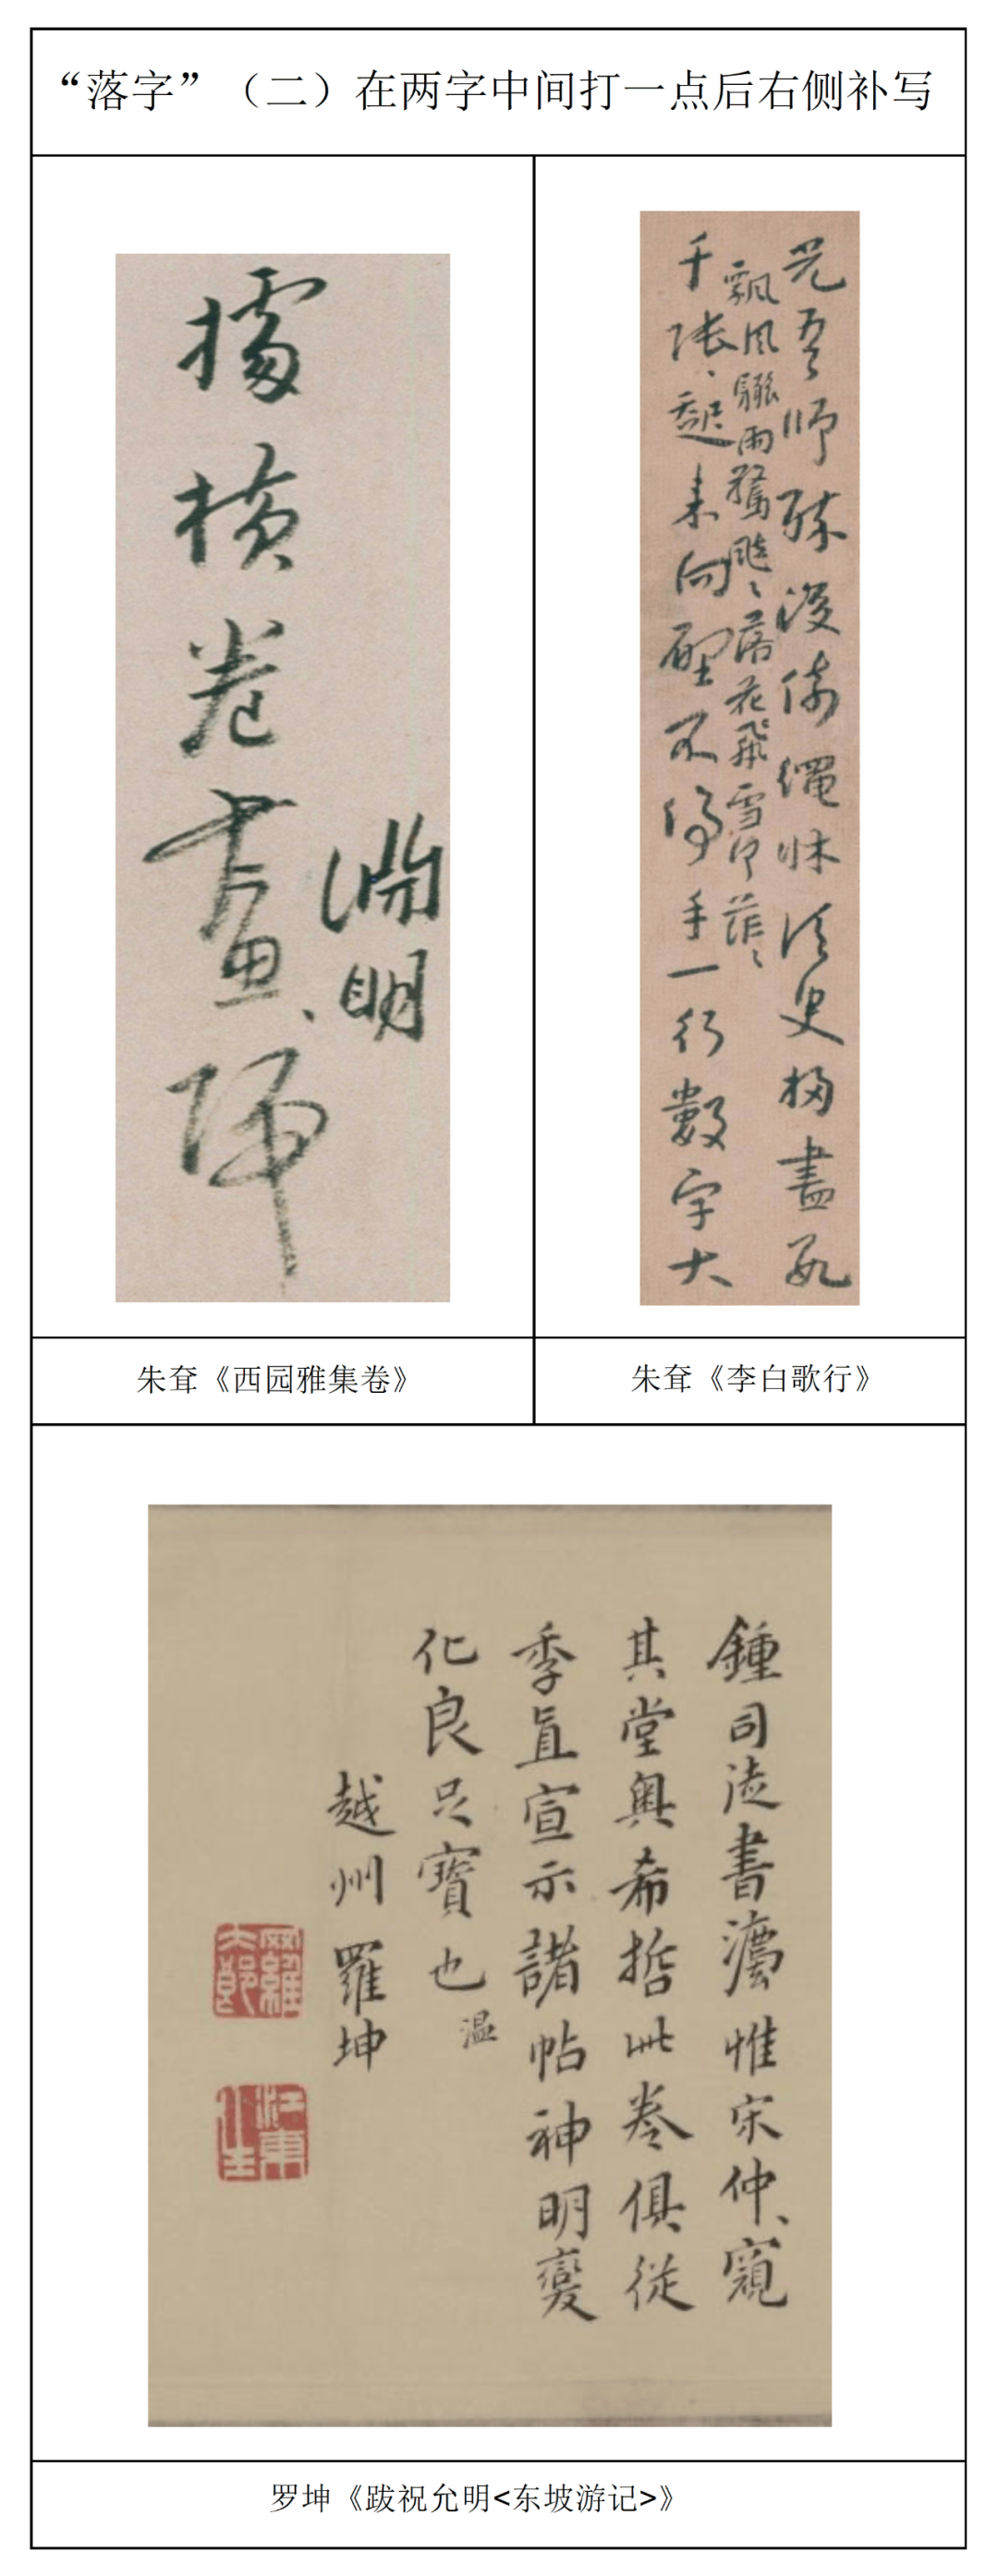 “落字”（二）在两字中间打一点后右侧补写
淵明
據橫卷畫、歸
光吾師醉後倚繩牀須臾掃盡數
飄風驟雨驚颯〻落花飛雪何茫〻
千張、起来向壁不停手一行數字大
朱耷《西园雅集卷》
朱耷《李白歌行》
鍾司徒書灋惟宋仲、窺
其堂奥希哲此卷俱從
季直宣示諸帖神明變
化良足寶也
温
越州羅坤
罗坤《跋祝允明<东坡游记>》